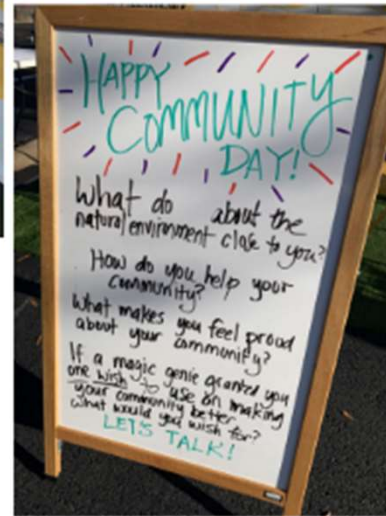 HAPPY
COMMUNITY
DAY!
What do about the
natural environment close to you?
How do you help your
community?
What makes you feel proud
about your community?
If a magic genie granted you
one wish to use on making
your community better,
what would you wish for?
LET'S TALK!